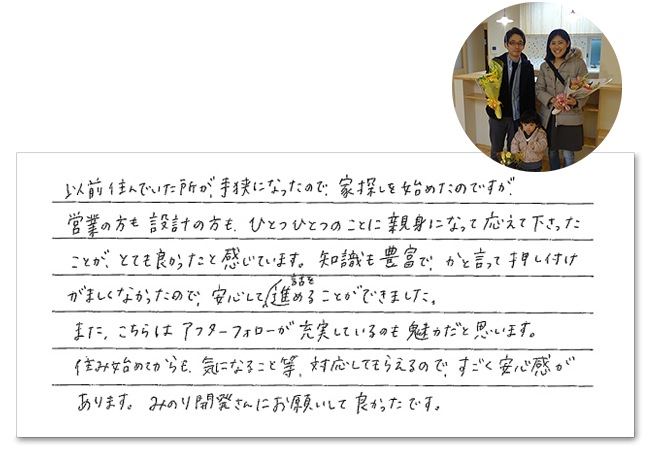 以前住んでいた所が、手狭になったので、家探しを始めたのですが、
営業の方も設計の方も、ひとつひとつのことに親身になって応えて下さった
ことが、とても良かったと感じています。知識も豊富で、かと言って押し付け
がましくなかったので、安心して話を進めることができました。
また、こちらはアフターフォローが充実しているのも魅力だと思います。
住み始めてからも、気になること等、対応してもらえるので、すごく安心感が
あります。みのり開発さんにお願いして良かったです。